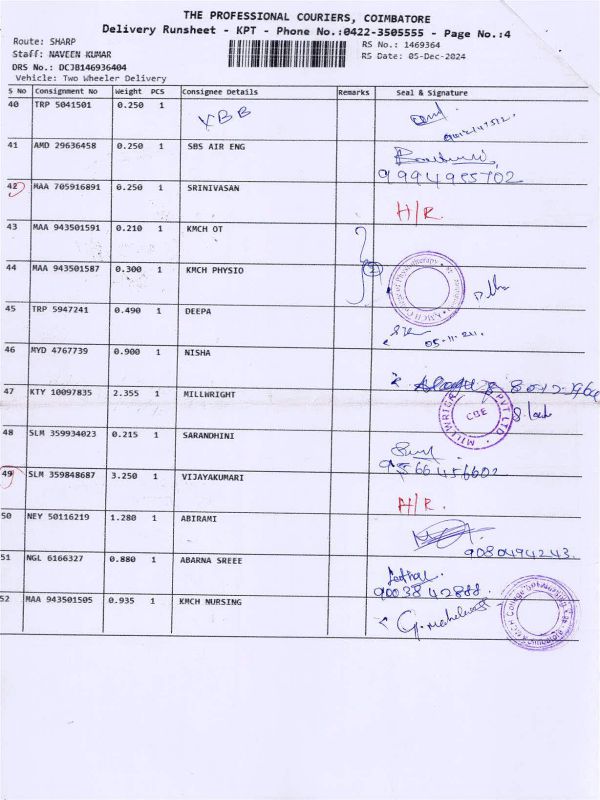 THE PROFESSIONAL COURIERS, COIMBATORE
Delivery Runsheet - KPT - Phone No.:0422-3505555 - Page No.:4
Route: SHARP
Staff: NAVEEN KUMAR
DRS No.: DCJB146936404
Vehicle: Two Wheeler Delivery
RS No.: 1469364
RS Date: 05-Dec-2024
S No Consignment No Weight PCS Consignee Details Remarks Seal & Signature
40 TRP 5041501 0.250 1 XBB
41 AMD 29636458 0.250 1 SBS AIR ENG
9994955702
42 MAA 705916891 0.250 1 SRINIVASAN H/R
43 MAA 943501591 0.210 1 KMCH OT
44 MAA 943501587 0.300 1 KMCH PHYSIO 2
45 TRP 5947241 0.490 1 DEEPA
46 MYD 4767739 0.900 1 NISHA
47 KTY 10097835 2.355 1 MILLWRIGHT MILLWRIGHT PVT LTD CBE
48 SLM 359934023 0.215 1 SARANDHINI
49 SLM 359848687 3.250 1 VIJAYAKUMARI H/R.
50 NEY 50116219 1.280 1 ABIRAMI
9080494243.
51 NGL 6166327 0.880 1 ABARNA SREEE
9003842888.
52 MAA 943501505 0.935 1 KMCH NURSING